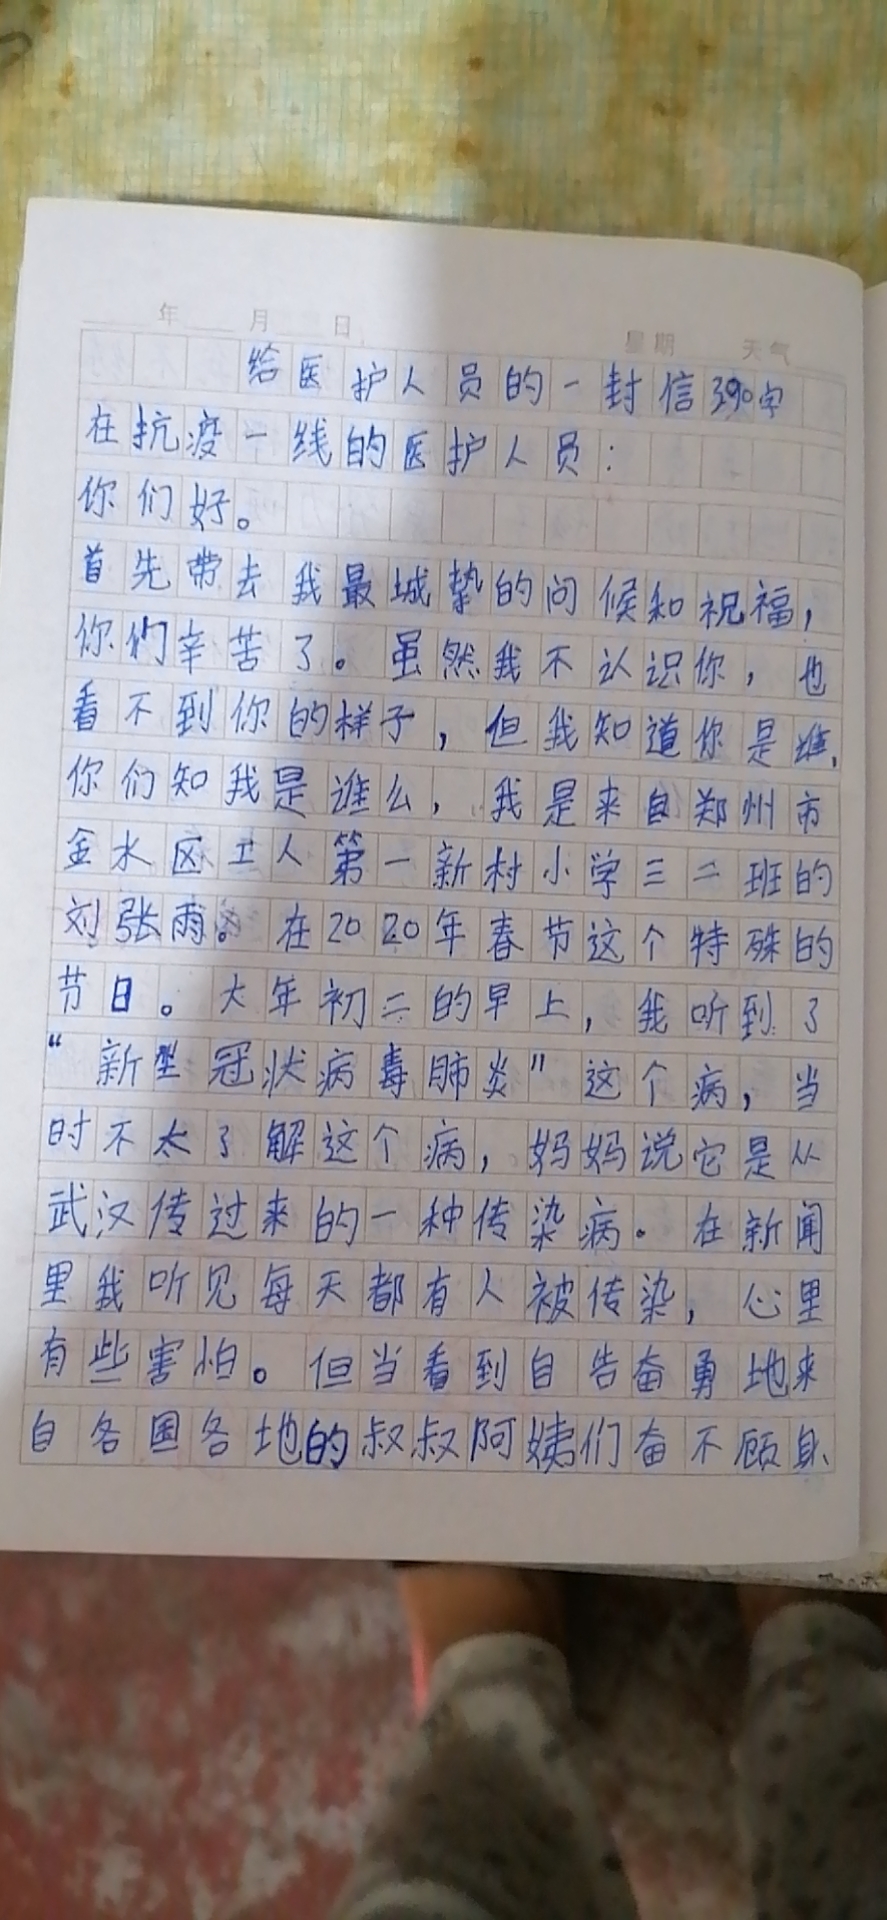 年 月 日 星期 天气
给医护人员的一封信390字
在抗疫一线的医护人员：
你们好。
首先带去我最城挚的问候和祝福，
你们辛苦了。虽然我不认识你，也
看不到你的样子，但我知道你是谁，
你们知我是谁么，我是来自郑州市
金水区工人第一新村小学三二班的
刘张雨。在2020年春节这个特殊的
节日。大年初二的早上，我听到了
“新型冠状病毒肺炎”这个病，当
时不太了解这个病，妈妈说它是从
武汉传过来的一种传染病。在新闻
里我听见每天都有人被传染，心里
有些害怕。但当看到自告奋勇地来
自各国各地的叔叔阿姨们奋不顾身